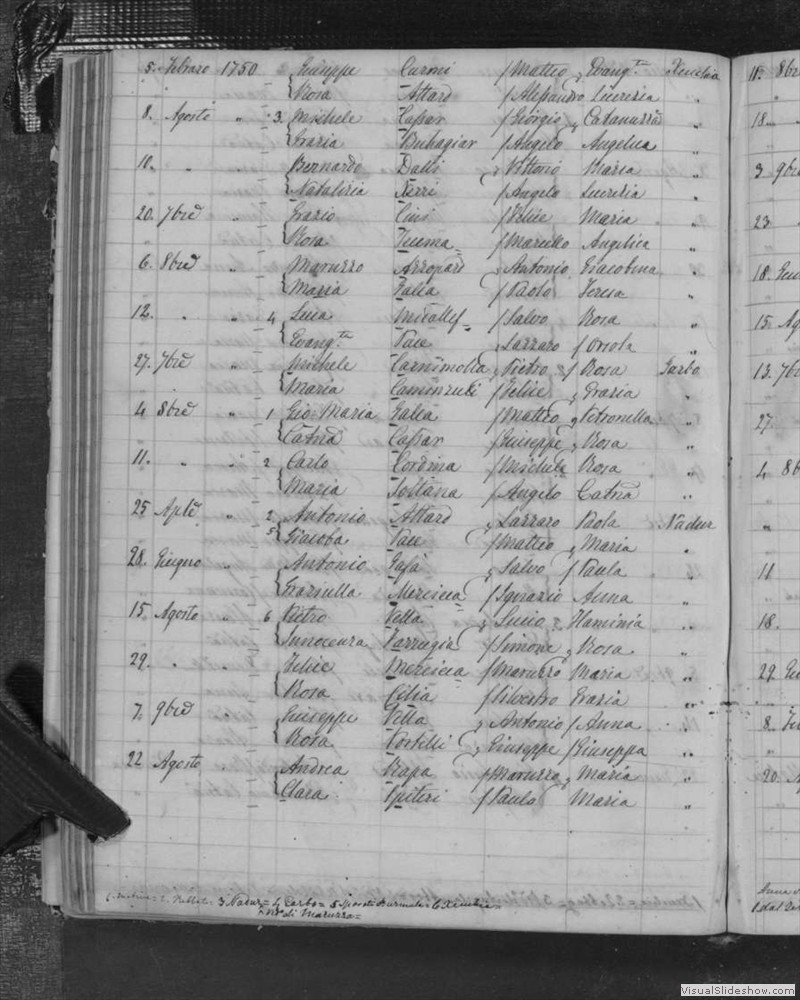 5. Febraro 1750 2 Giuseppe Curmi / Matteo , Evang.ta Xeuchia
Rosa Attard / Alessandro Lucrezia "
8. Agosto " 3. Michele Cassar / Giorgio , Catanuzza "
Grazia Buhagiar / Angelo Angelica "
10. " Bernardo Dalli , Vittorio Maria "
Natalizia Xerri / Angelo Lucrezia "
20. 7bre " Grazio / Felice Maria "
Rosa Teuma / Marcello Angelica "
6. 8bre " Maruzzo Azzopard , Antonio Giacobina "
Maria Galea / Paolo Teresa "
12. " " 4 Luca Micallef / Salvo Rosa "
Evang.ta Pace , Lazzaro / Orsola "
27. 7bre " Michele , Pietro / Rosa Garbo
Maria Camenzuli / Felice , Grazia "
4 8bre " 1 Gio: Maria Galea / Matteo , Petronella "
Catna Cassar / Giuseppe , Rosa "
11. " " 2 Carlo Cordina / Michele Rosa "
Maria Soltana / Angelo Catna "
25 Aple " 2 Antonio Attard , Lazzaro Paola Nadur
5 Giacoba Pace / Matteo , Maria "
28. Giugno " Antonio Gafà , Salvo / Paula "
Graziulla Mercieca / Ignazio Anna "
15 Agosto " 6 Pietro Vella , Lucio , Flaminia "
Innocenza Farrugia / Simone , Rosa "
29. " " Felice Mercieca / Maruzzo Maria "
Rosa Cilia / Silvestro Grazia "
7. 9bre Giuseppe Vella , Antonio / Anna "
Rosa Portelli , Giuseppe / Giuseppa "
22 Agosto Andrea Rapa / Maruzzo , Maria "
Clara Spiteri / Paulo Maria "
3 Nadur = 4 Garbo = 5 6 Xeuchia =
di Maruzzo =
11. 8bre
18. "
3 9bre
23
18. Gen
15. Ag
13. 7b
27.
4 8b
"
11
18.
29. Gi
8.
20. A
VisualSlideshow.com